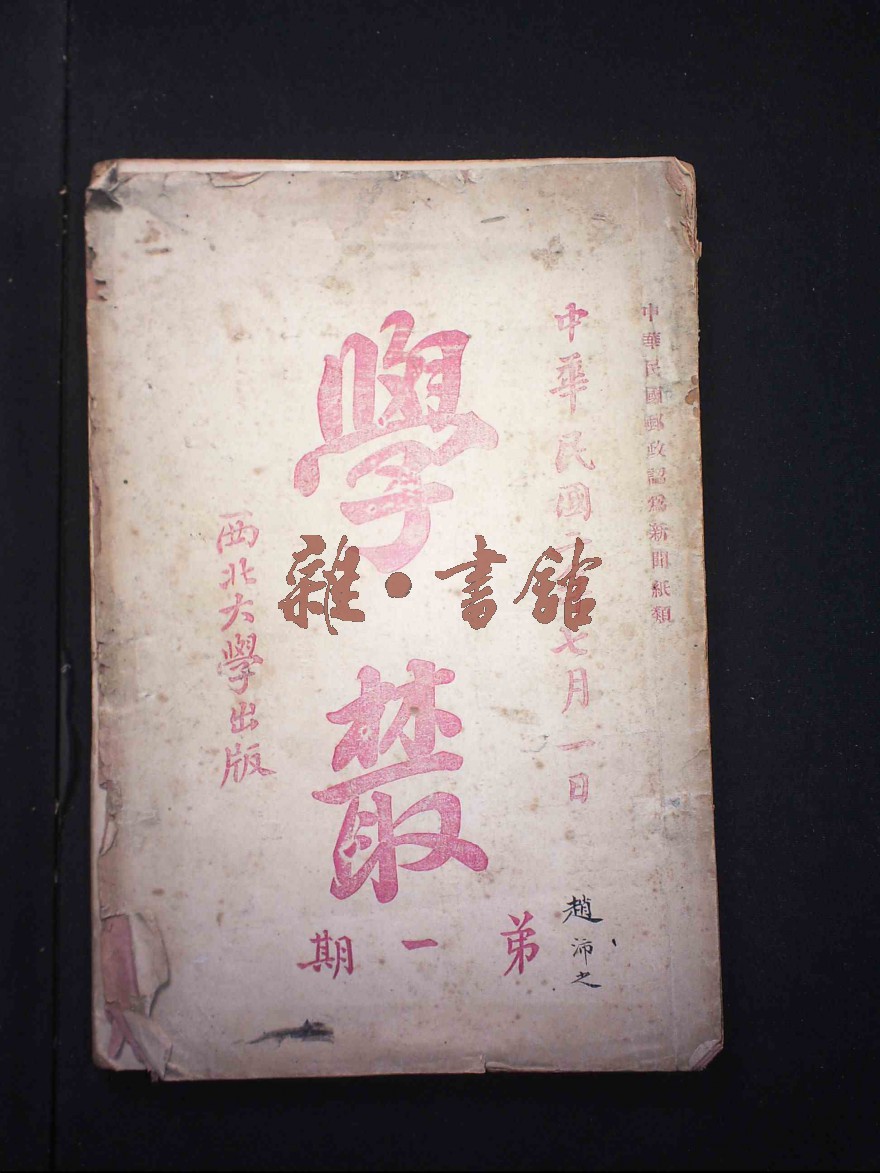 中華民國郵政認爲新聞紙類
中華民國二 七月一日
學叢
西北大學出版
弟一期
趙沛之
雜·書館